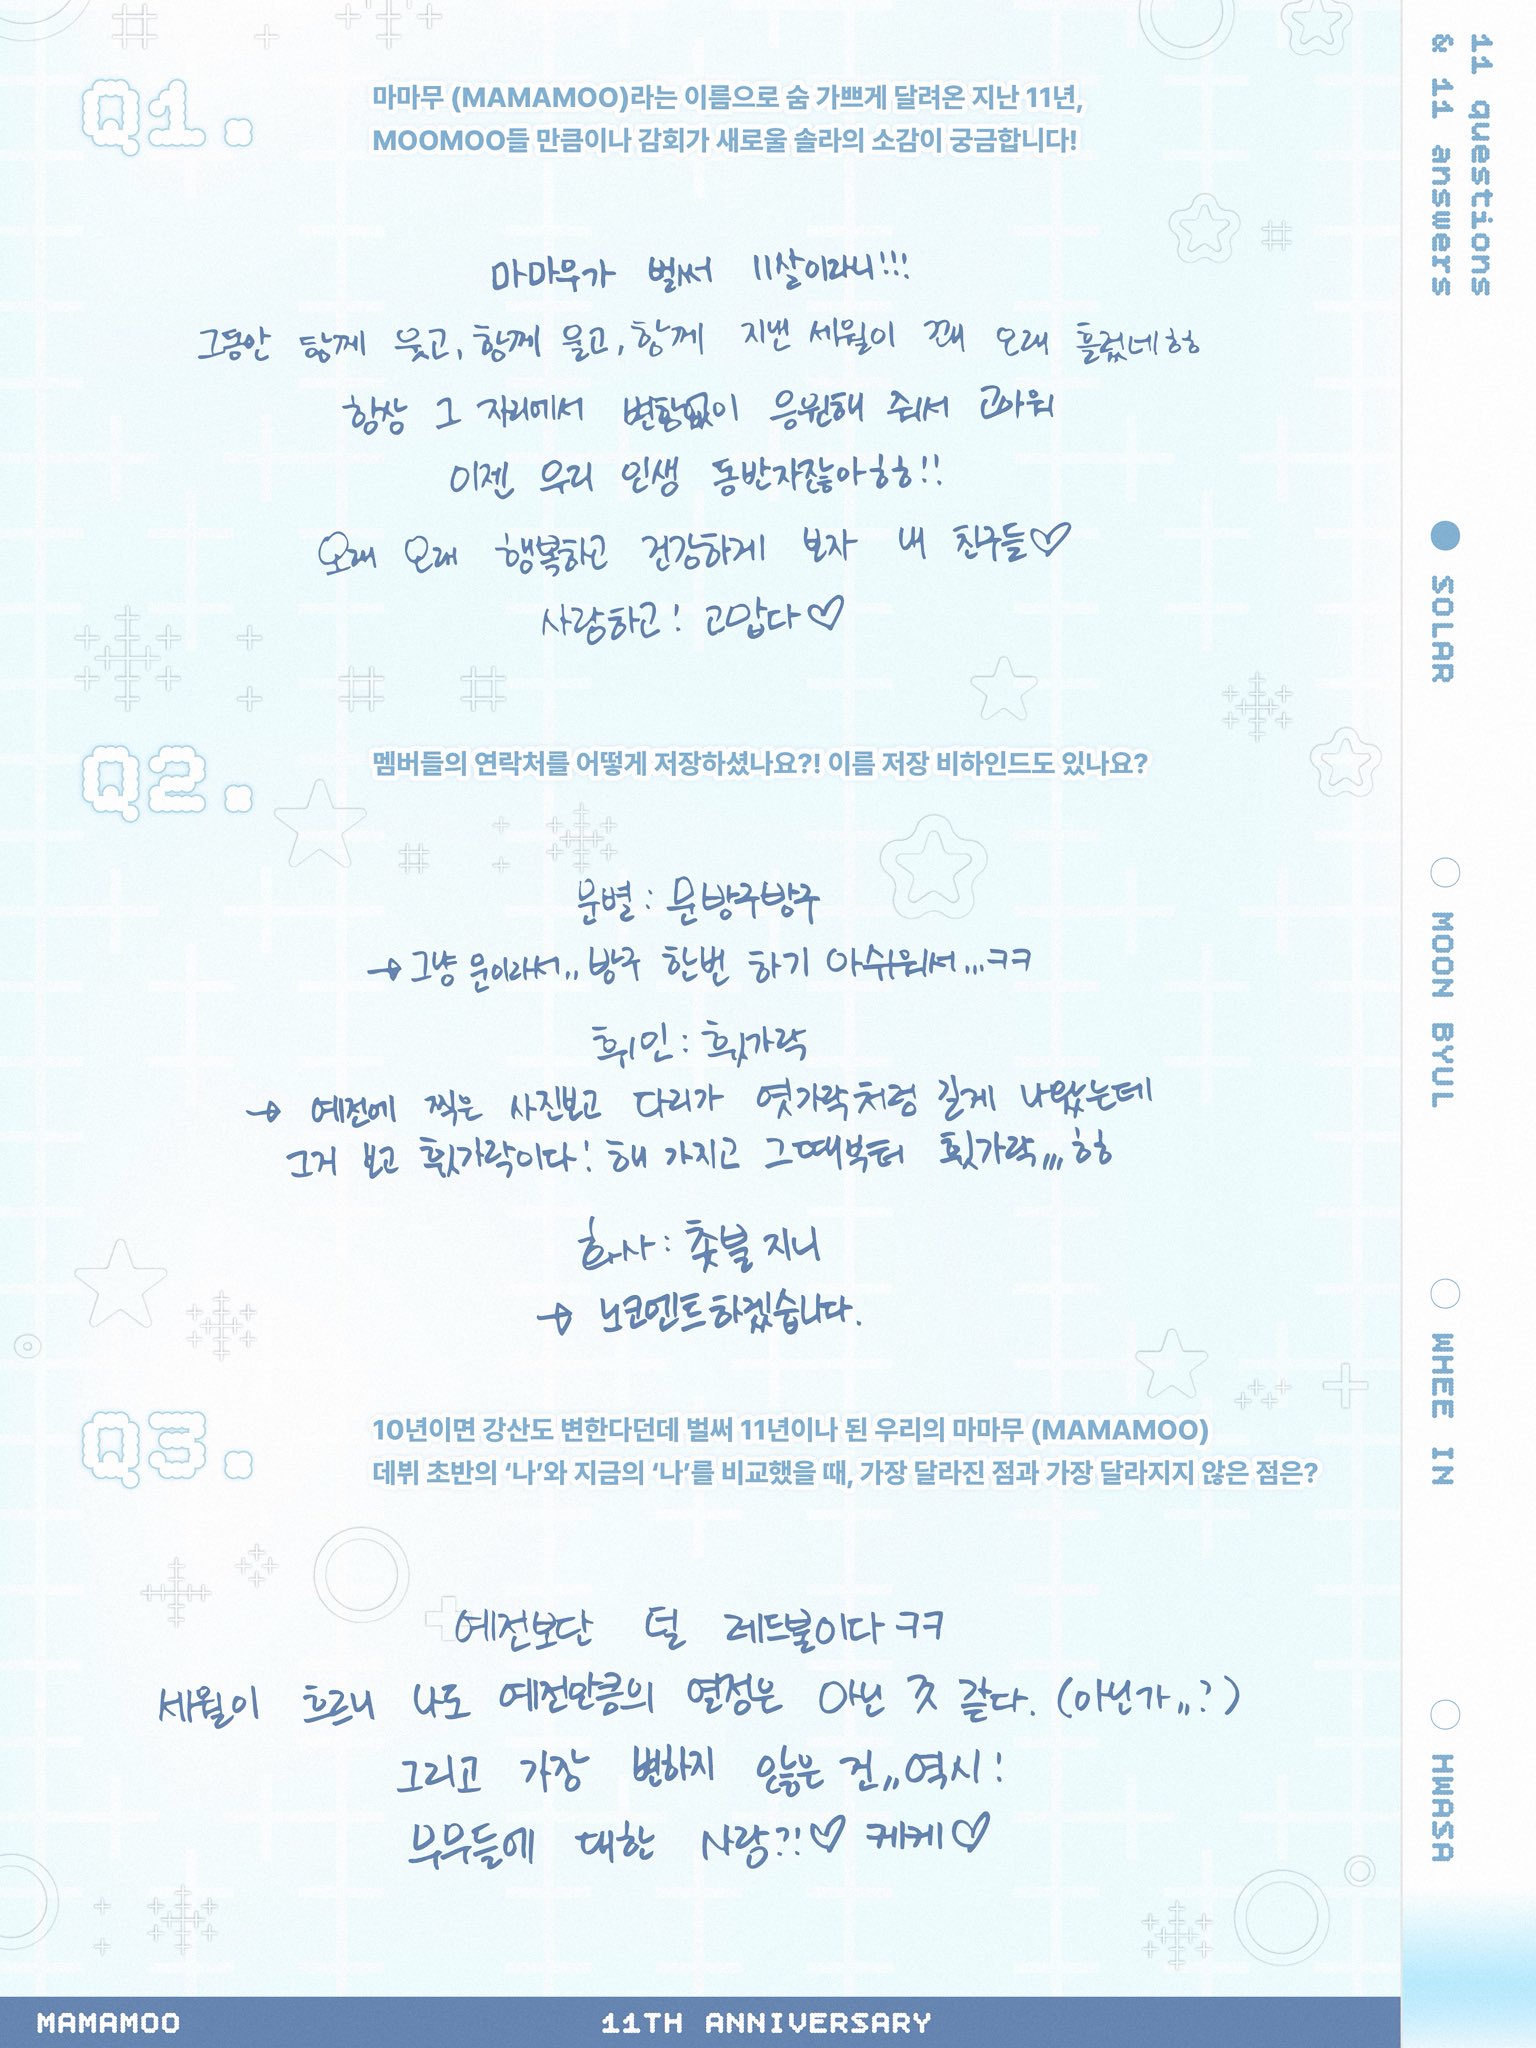 11 questions
& 11 answers
SOLAR
MOON BYUL
WHEE IN
HWASA
Q1.
마마무 (MAMAMOO)라는 이름으로 숨 가쁘게 달려온 지난 11년,
MOOMOO들 만큼이나 감회가 새로울 솔라의 소감이 궁금합니다!
마마무가 벌써 11살이라니!!!
그동안 함께 웃고, 함께 울고, 함께 지낸 세월이 꽤 오래 흘렀네ㅎㅎ
항상 그 자리에서 변함없이 응원해 줘서 고마워
이젠 우리 인생 동반자잖아ㅎㅎ!!
오래 오래 행복하고 건강하게 보자 내 친구들♡
사랑하고! 고맙다♡
Q2.
멤버들의 연락처를 어떻게 저장하셨나요?! 이름 저장 비하인드도 있나요?
문별 : 문방구방구
→ 그냥 문이라서,, 방구 한번 하기 아쉬워서...ㅋㅋ
휘인 : 휫가락
→ 예전에 찍은 사진보고 다리가 엿가락처럼 길게 나왔는데
그거 보고 휫가락이다! 해 가지고 그때부터 휫가락,,,ㅎㅎ
화사 : 촛불 지니
→ 노코멘트하겠습니다.
Q3.
10년이면 강산도 변한다던데 벌써 11년이나 된 우리의 마마무 (MAMAMOO)
데뷔 초반의 ‘나’와 지금의 ‘나’를 비교했을 때, 가장 달라진 점과 가장 달라지지 않은 점은?
예전보단 덜 레드불이다 ㅋㅋ
세월이 흐르니 나도 예전만큼의 열정은 아닌 것 같다. (아닌가,,?)
그리고 가장 변하지 않은 건,, 역시!
무무들에 대한 사랑?!♡ 케케♡
MAMAMOO
11TH ANNIVERSARY